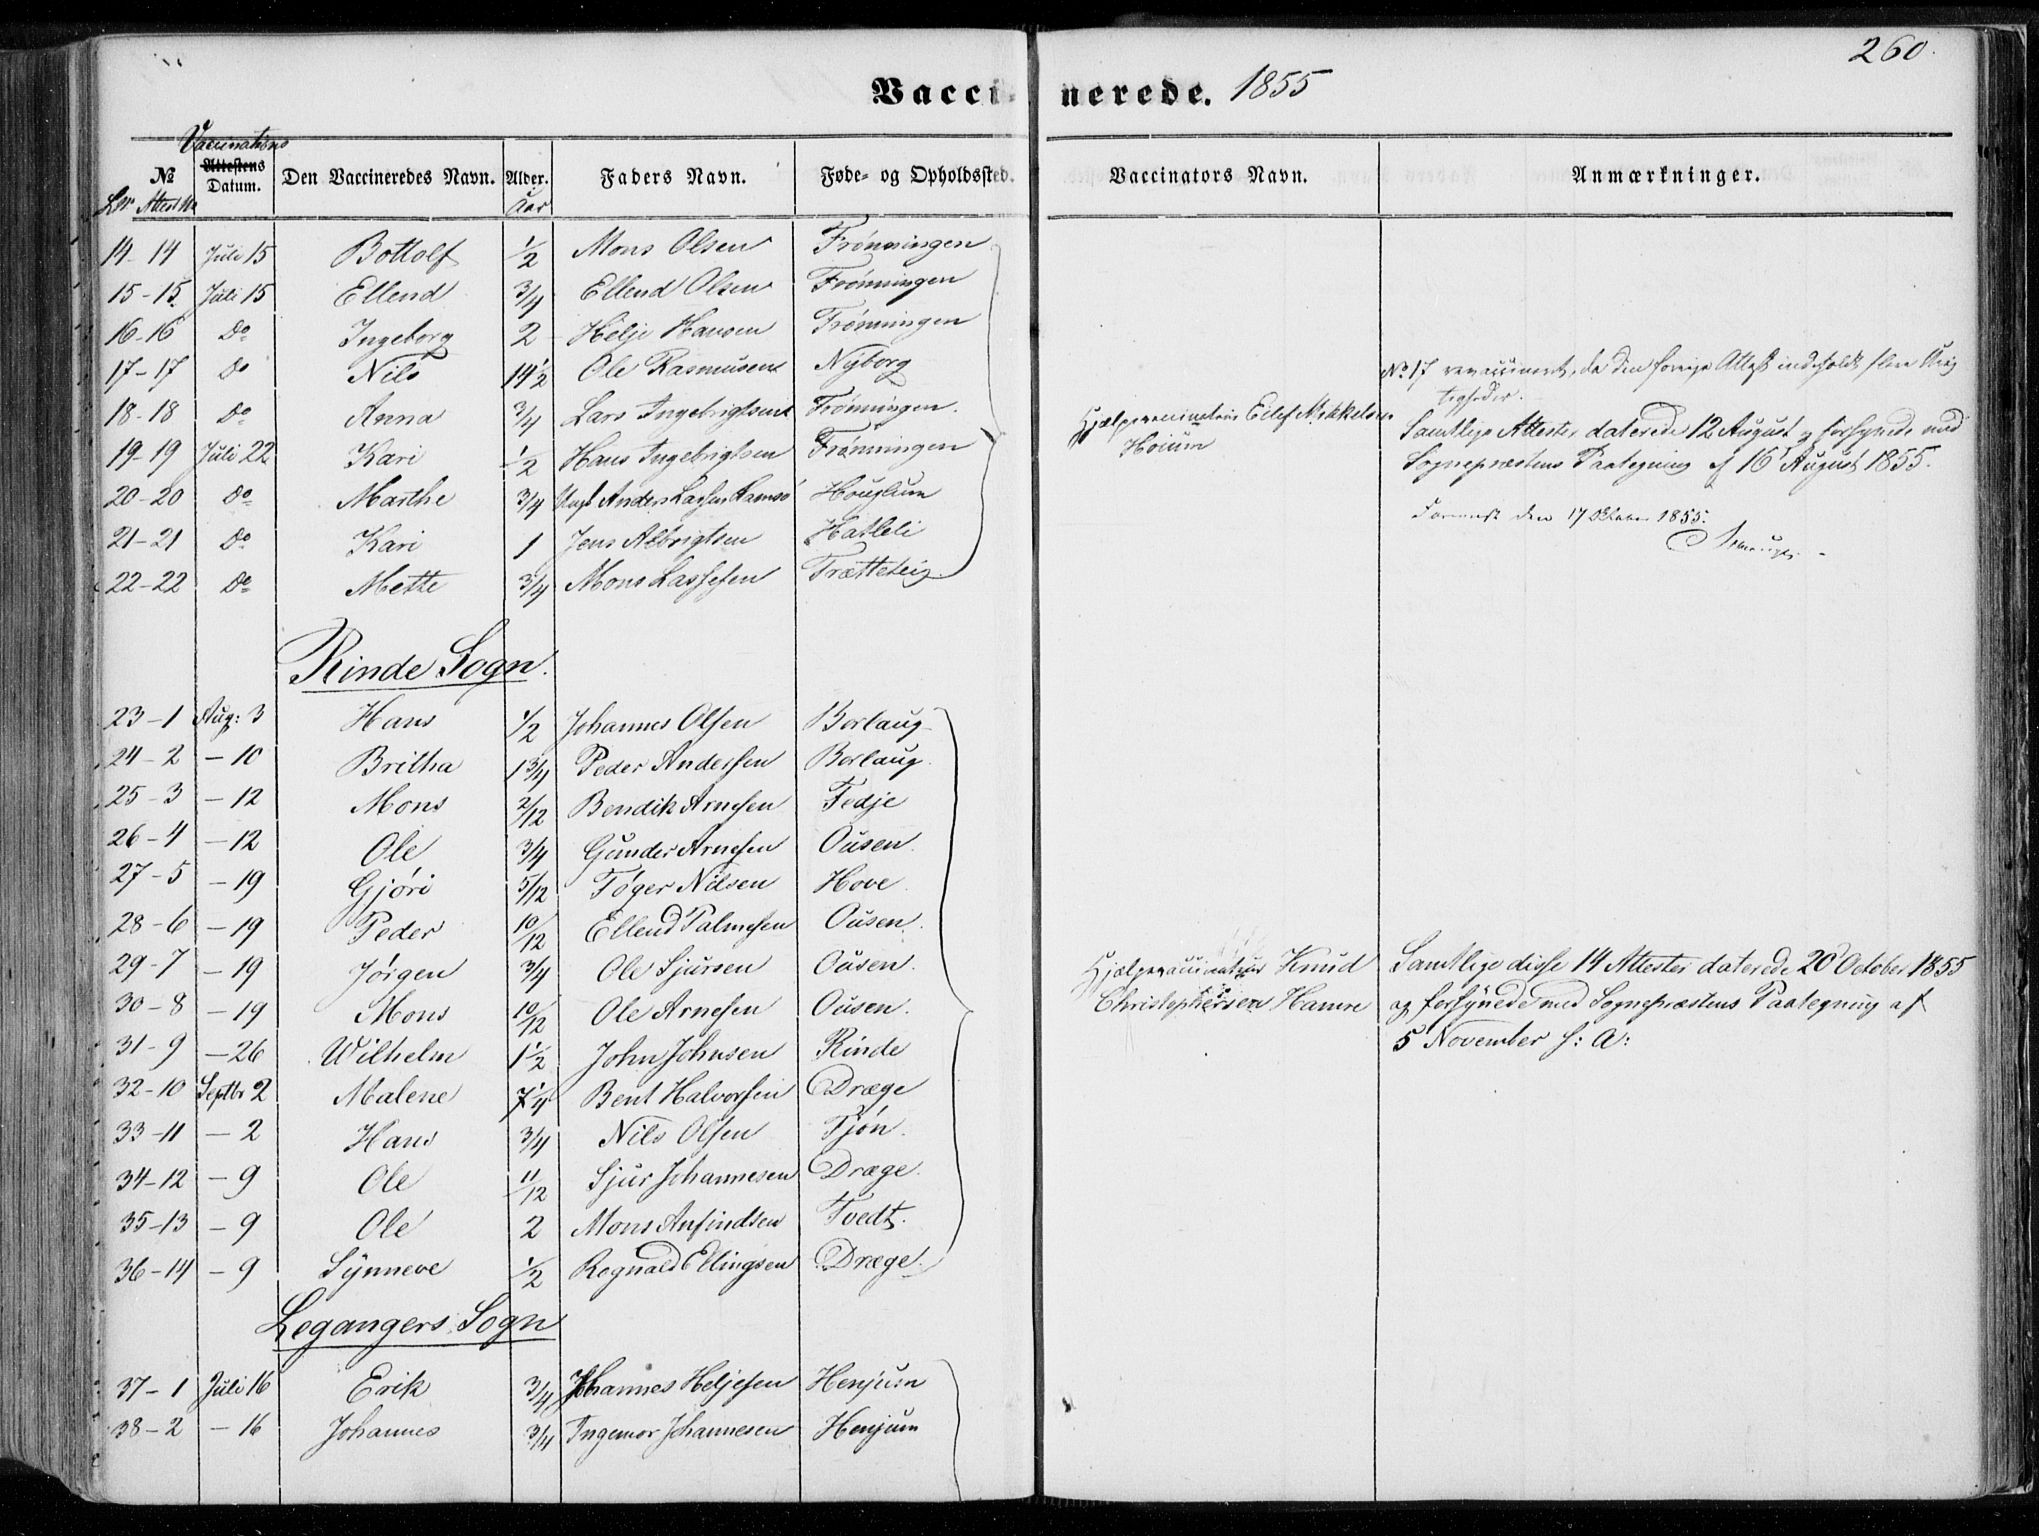 260.
Vaccinerede. 1855
Vaccinations
№ Attestens Datum. Den Vaccineredes Navn. Alder. Faders Navn. Føde- og Opholdssted. Vaccinators Navn. Anmærkninger.
Lb№ Attest№ Aar
14-14 Juli 15 Bottolf 1/2 Mons Olsen Frønningen
15-15. Juli 15 Ellend 3/4 Ellend Olsen Frønningen
16-16 Do Ingeborg 2 Helje Hansen Frønningen
17-17 Do Nils 14 1/2 Ole Rasmusen Nÿborg
18-18 Do Anna 3/4 Lars Ingebrigtsen Frønningen.
19-19 Juli 22 Kari 1/2 Hans Ingebrigtsen Frønningen
20-20 Do Marthe 3/4 Anders Lassen Houglum
21-21 Do Kari 1 Jens Albrigtsen Hatleli
22-22 Do Mette 3/4 Mons Lassesen Trætteteig.
Hjælpevaccinatør Eilef Mikkelsen
Hoium
№ 17 revaccineret, da den forrige Attest indeholdt flere Urig
tigheder.
Samtlige Attester daterede 12 August og forsynede med
Sognepræstens Paategning af 16 August 1855.
den 17 Oktober 1855.
Rinde Sogn.
23-1 Aug: 3 Hans 1/2 Johannes Olsen Borlaug
24-2 -10 Britha 1 3/4 Peder Andersen Borlaug.
25-3 -12 Mons 2/12 Bendik Arnesen Fedje
26-4 -12 Ole 3/4 Gunder Arnesen Ousen.
27-5 -19 Gjøri 5/12 Tøger Nilsen Hove.
28-6 -19 Peder 10/12 Ellend Palmesen Ousen.
29-7 -19 Jørgen 3/4 Ole Sjursen Ousen.
30-8 -19 Mons 10/12 Ole Arnesen Ousen.
31-9 -26 Wilhelm 1 1/2 John Johnsen Rinde
32-10 Septbr 2 Malene 7 1/4 Bent Halvorsen Dræge
33-11 -2 Hans 3/4 Nils Olsen Tjøn.
34-12 -9 Ole 11/12 Sjur Johannesen Dræge.
35-13 -9 Ole 2 Mons Anfindsen Tvedt.
36-14 -9 Sÿnneve 1/2 Rognald Ellingsen Dræge.
Hjælpevaccinatør Knud
Christophersen Hamre
Samtlige disse 14 Attester daterede 20 October 1855
og forsÿnede med Sognepræstens Paategning af
5 November s: A:
Legangers Sogn
37-1 Juli 16 Erik 3/4 Johannes Heljesen Henjum
38-2 -16 Johannes 3/4 Ingemor Johannesen Henjum